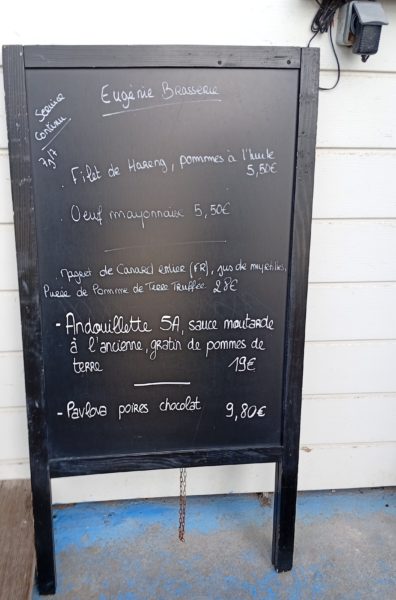 Eugénie Brasserie
Service
Continu
7J/7
. Filet de Hareng, pommes à l'huile
5,50€
. Oeuf mayonnaise 5,50€
. Magret de Canard entier (FR), jus de myrtilles,
Purée de Pomme de Terre Truffée 28€
- Andouillette 5A, sauce moutarde
à l'ancienne, gratin de pommes de
terre 19€
- Pavlova poires chocolat 9,80€